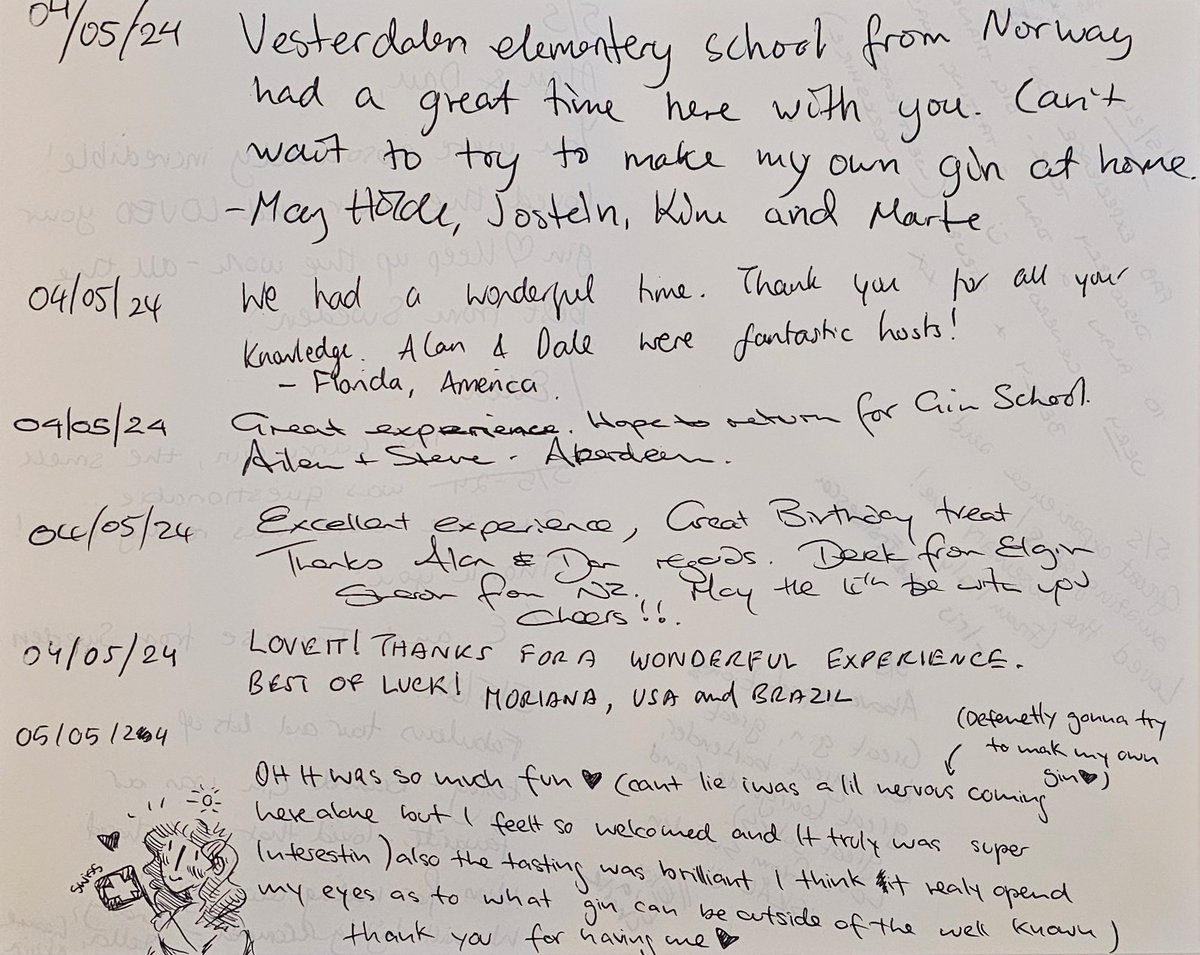 04/05/24 Vesterdalen elementery school from Norway
had a great time here with you. Can't
wait to try to make my own gin at home.
- May Hilde, Jostein, Kim and Marte
04/05/24 We had a wonderful time. Thank you for all your
Knowledge. Alan & Dale were fantastic hosts!
- Florida, America.
04/05/24 Great experience. Hope to return for Gin School.
Ailen + Steve - Aberdeen.
04/05/24 Excellent experience, Great Birthday treat
Thanks Alan & Dan regads. Derek from Elgin
from NZ. May the be with you
Cheers!!.
04/05/24 LOVE IT! THANKS FOR A WONDERFUL EXPERIENCE.
BEST OF LUCK! MORIANA, USA and BRAZIL
05/05/24
(Defenetly gonna try
to mak my own
gin♥)
OH It was so much fun ♥ (cant lie i was a lil nervous coming
here alone but I feelt so welcomed and It truly was super
Interestin) also the tasting was brilliant I think it realy opend
my eyes as to what gin can be outside of the well known)
thank you for having me ♥
swiss